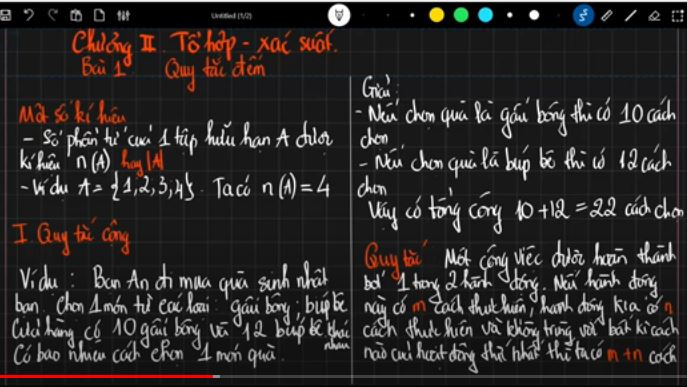 Untitled (1/2)
Chương II. Tổ hợp - xác suất.
Bài 1 Quy tắc đếm
Một số kí hiệu
- Số phần tử của 1 tập hữu hạn A được
kí hiệu n(A) hay |A|
- Ví dụ A = {1,2,3,4}. Ta có n(A) = 4
I. Quy tắc cộng
Ví dụ : Bạn An đi mua quà sinh nhật
bạn. Chọn 1 món từ các loại: gấu bông, búp bê
Cửa hàng có 10 gấu bông và 12 búp bê khác
nhau
Có bao nhiêu cách chọn 1 món quà.
Giải:
- Nếu chọn quà là gấu bông thì có 10 cách
chọn
- Nếu chọn quà là búp bê thì có 12 cách
chọn
Vậy có tổng cộng 10+12=22 cách chọn
Quy tắc Một công việc được hoàn thành
bởi 1 trong 2 hành động. Nếu hành động
này có m cách thực hiện, hành động kia có n
cách thực hiện và không trùng với bất kì cách
nào của hoạt động thứ nhất thì ta có m+n cách